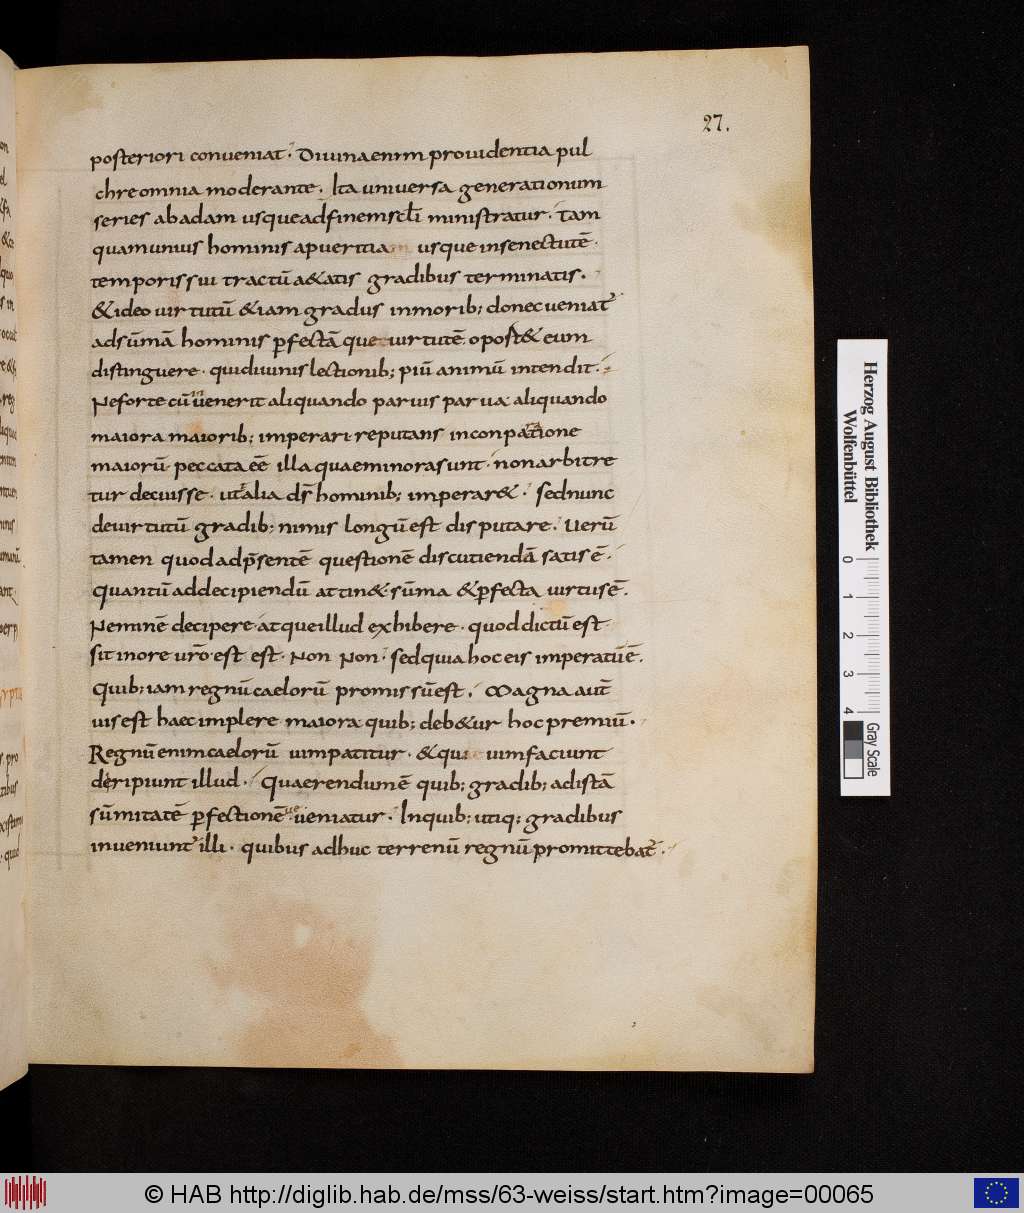 27.
posteriori conueniat. Diuina enim prouidentia pul
chre omnia moderante. Ita uniuersa generationum
series ab adam usque ad finem scl̄i ministratur. Tam
quam unius hominis a pueritia usque in senectutē.
temporis sui tractū a&atis gradibus terminatis.
& ideo uirtutū &iam gradus in morib; donec ueniat
ad sūmā hominis p̄fectā que uirtutē. oport& eum
distinguere. qui diuinis lectionib; piū animū intendit.
Ne forte cū inuenerit aliquando paruis parua aliquando
maiora maiorib; imperari reputans in conparatione
maiorū peccata eē illa quae minora sunt. non arbitre
tur decuisse. ut talia dš hominib; imperar&. Sed nunc
de uirtutū gradib; nimis longū est disputare. Uerū
tamen quod ad p̄sentē questionē discutiendā satis ē.
quantū ad decipiendū attin& sūma & p̄fecta uirtus ē.
Neminē decipere. atque illud exhibere. quod dictū est.
sit in ore uro᷎. est est. Non Non. sed quia hoc eis imperatū ē.
quib; iam regnū caelorū promissū est. Magna aut̄
uis est haec implere maiora quib; deb&ur hoc premiū.
Regnū enim caelorū uim patitur. & qui uim faciunt
deripiunt illud. Quaerendum ē quib; gradib; ad istā
sūmitatē p̄fectionē ue ueniatur. In quib; utiq; gradibus
inueniunt᷑ illi. quibus adhuc terrenū regnū promittebat᷑.
Herzog August Bibliothek
Wolfenbüttel
0 1 2 3 4
Gray Scale
© HAB http://diglib.hab.de/mss/63-weiss/start.htm?image=00065